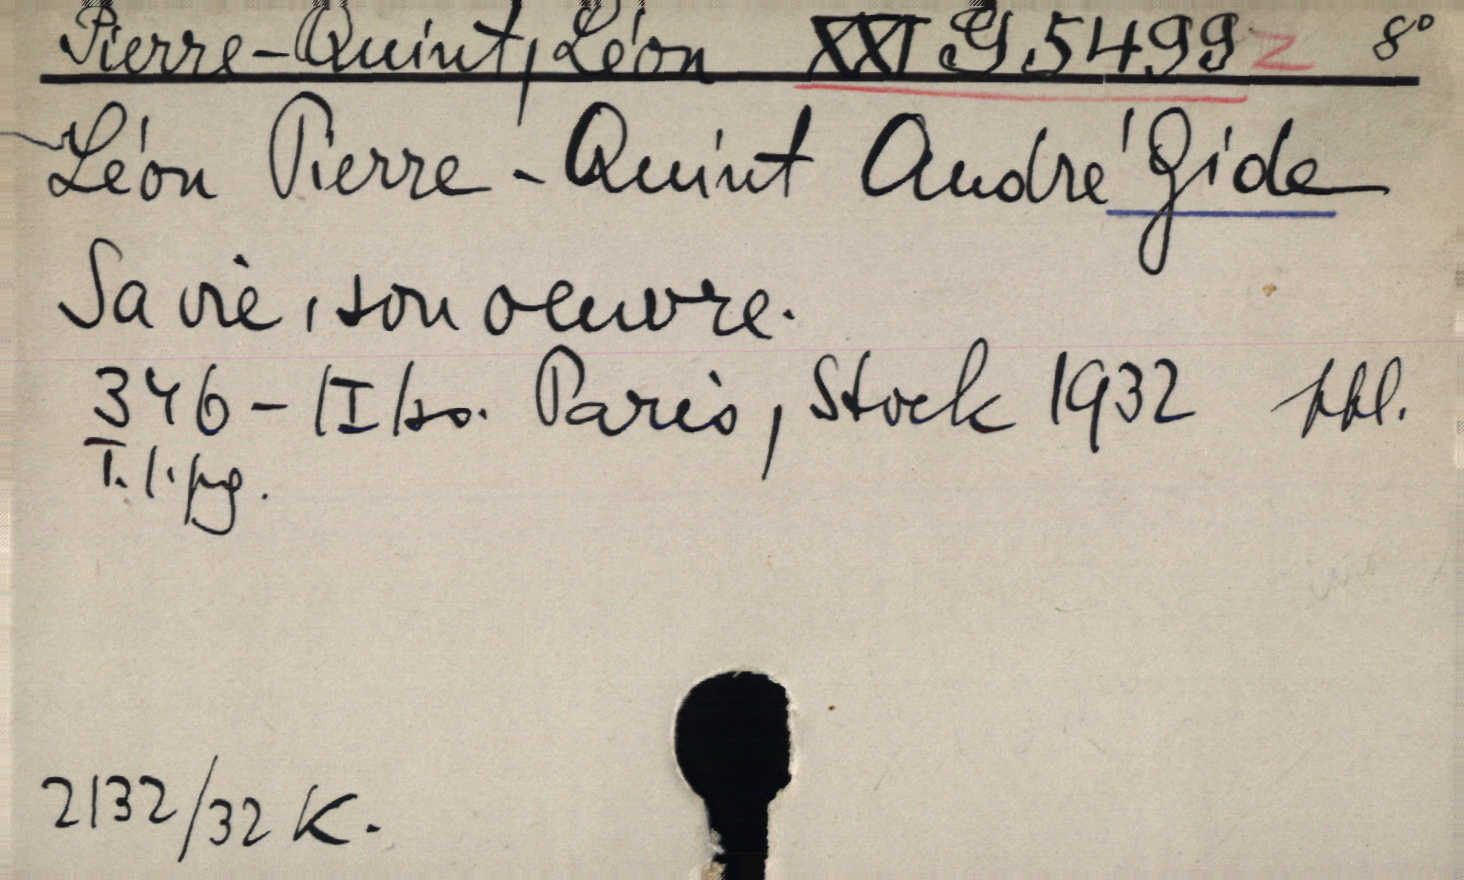 Pierre-Quint, Léon XXI G 5499 Z 8°
Léon Pierre-Quint André Gide
Sa vie, son oeuvre.
346 - |I| Paris, Stock 1932
T. l. pg.
2132/32 K.